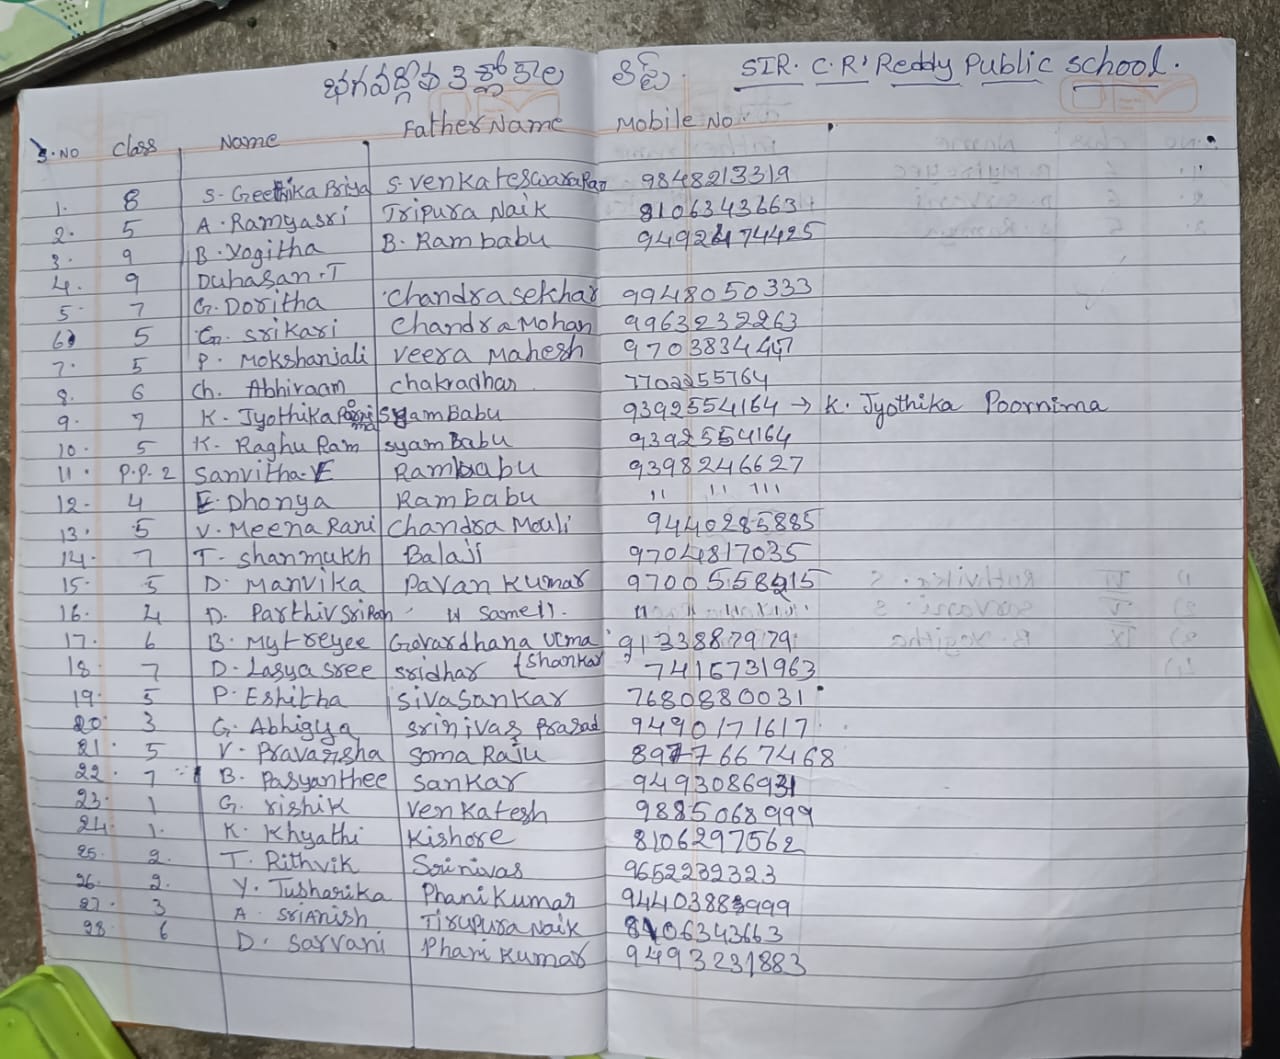 భగవద్గీత శ్లోకాల లిస్ట్. SIR. C. R. Reddy Public School.
S.NO Class Name Father Name Mobile No
1. 8 S. Geethika Priya S. Venkateswara Rao 9848213319
2. 5 A. Ramyasri Tripura Naik 8106343663
3. 9 B. Yogitha B. Rambabu 9492474425
4. 9 Duhasan. T
5. 7 G. Doritha Chandrasekhar 9948050333
6. 5 G. Srikari Chandra Mohan 9963232263
7. 5 P. Mokshanjali Veera Mahesh 9703834447
8. 6 Ch. Abhiraam Chakradhar 7702255764
9. 7 K. Jyothika Syam Babu 9392554164 → K. Jyothika Poornima
10. 5 K. Raghu Ram Syam Babu 9392554164
11. P.P. 2 Sanvitha. E Rambabu 9398246627
12. 4 E. Dhonya Rambabu 11 11 111
13. 5 V. Meena Rani Chandra Mouli 9440285885
14. 7 T. Shanmukh Balaji 9704817035
15. 5 D. Manvika Pavan Kumar 9700558215
16. 4 D. Parthiv Sri Ram 11 Same 11.
17. 6 B. Mytreyee Govardhana Uma 9133887979
{Shankar
18. 7 D. Lasya sree Sridhar 7416731963
19. 5 P. Eshitha Sivasankar 7680880031
20. 3 G. Abhigya Srinivas Prasad 9490171617
21. 5 V. Pravarsha Soma Raju 8977667468
22. 7 B. Pasyanthee Sankar 9493086931
23. 1 G. rishik Venkatesh 9885068999
24. 1. K. Khyathi Kishore 8106297562
25. 2. T. Rithvik Srinivas 9652232323
26. 2. Y. Tusharika Phani Kumar 9440388999
27. 3 A. SriAnish Tirupura Naik 8106343663
28. 6 D. Sarvani Phani Kumar 9493231883